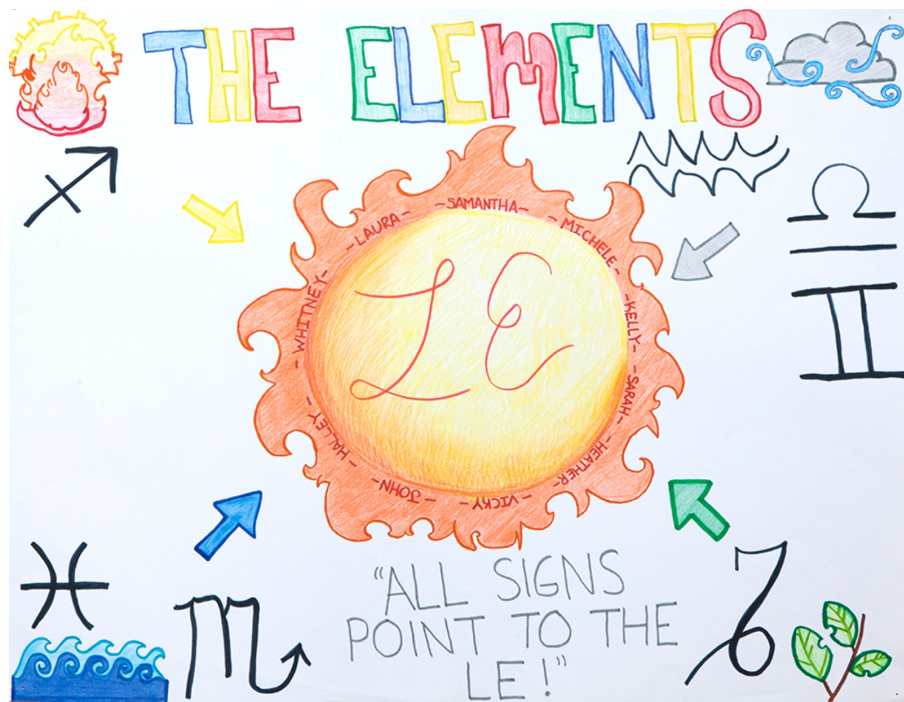 THE ELEMENTS
- SAMANTHA -
MICHELE -
- KELLY -
SARAH -
HEATHER -
VICKY -
- JOHN -
HALLEY -
- WHITNEY -
- LAURA -
LE
"ALL SIGNS
POINT TO THE
LE!"